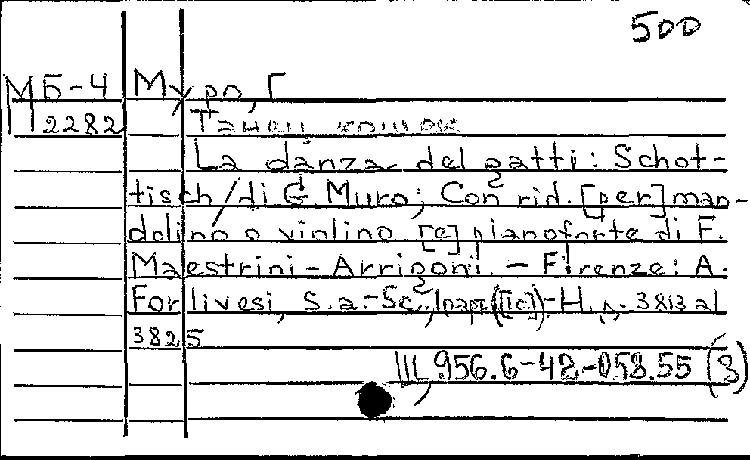 500
МБ-4 Муро, Г
2282 Танец кошек
La danza del gatti: Schot-
tisch/di G. Muro; Con rid. [per] man-
dolino o violino [e] pianoforte di F.
Maestrini-Arrigoni. - Firenze: A.
Forlivesi, S.a.-Sc., парт([ic]).-Н.д. 3813 al
3825
Ш, 956.6-48-058.55 (3)